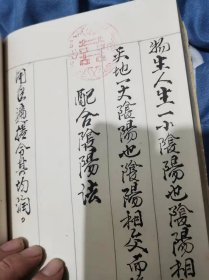 天地一大陰陽也陰陽相交而
物生人生一小陰陽也陰陽相
配合陰陽法
用法適得合其均润。